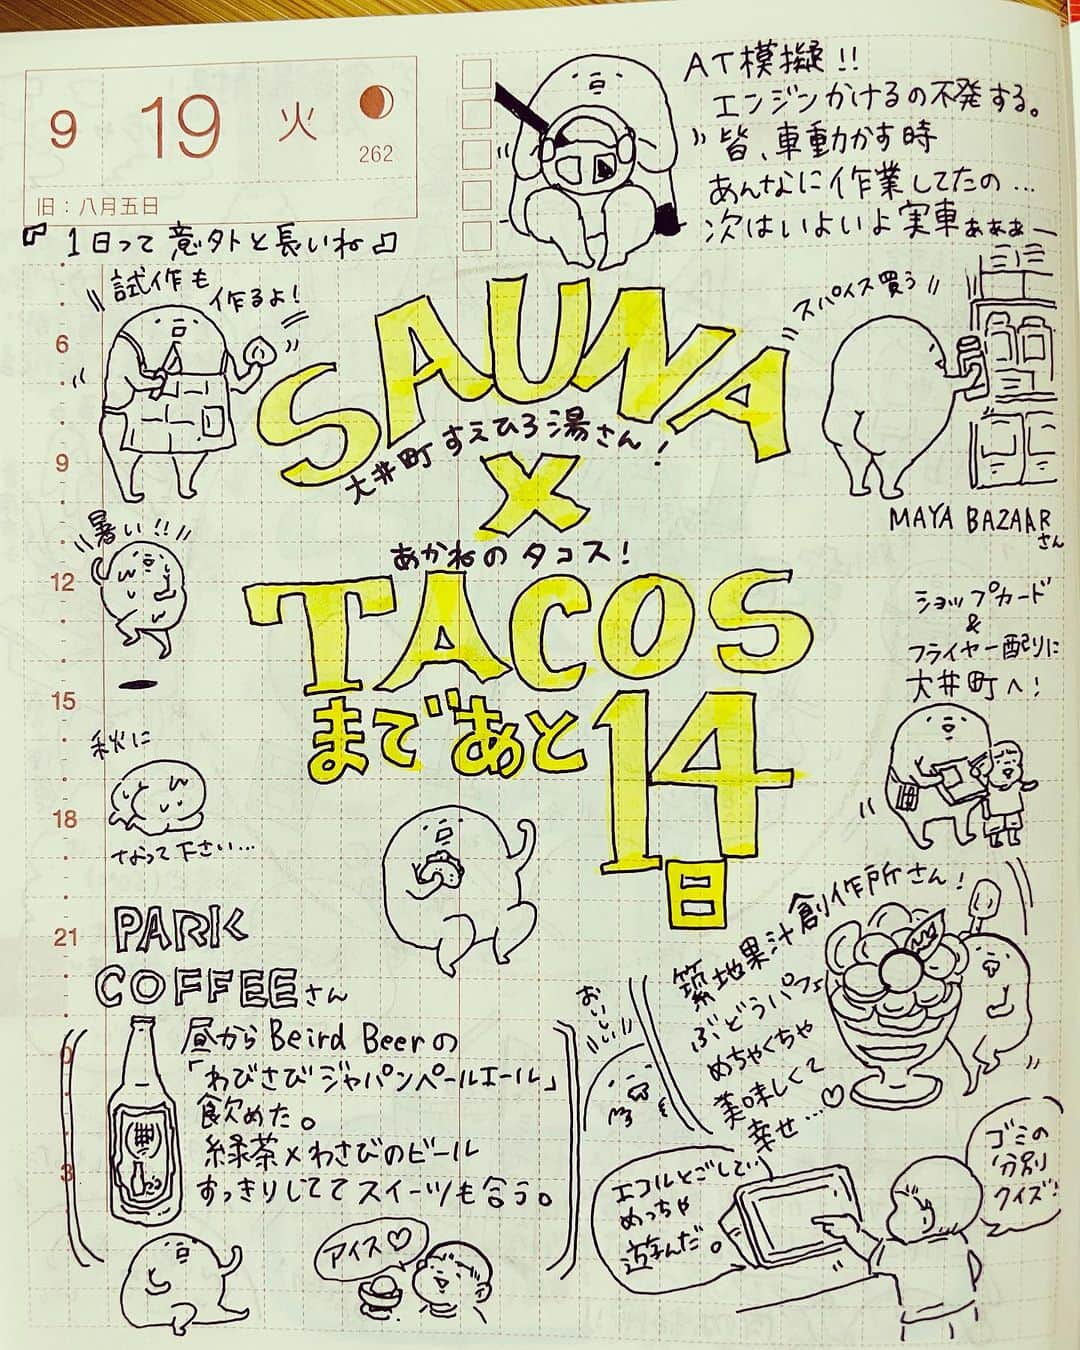 9 19 火
262
旧：八月五日
『1日って意外と長いね』
AT模擬!!
エンジンかけるの不発する。
皆、車動かす時
あんなに作業してたの…
次はいよいよ実車ぁぁぁー
試作も
作るよ!
SAUNA
大井町すえひろ湯さん!
×
あかねのタコス!
TACOS
まであと14
日
スパイス買う
MAYA BAZAAR
さん
暑い!!
秋に
なって下さい…
ショップカード
&
フライヤー配りに
大井町へ!
6
9
12
15
18
21
0
3
PARK
COFFEEさん
昼からBeird Beerの
「わびさびジャパンペールエール」
飲めた。
緑茶×わさびのビール
すっきりしててスイーツも合う。
アイス♡
おいしい
築地果汁創作所さん!
ぶどうパフェ
めちゃくちゃ
美味しくて
幸せ…♡
エコルとごしで
めっちゃ
遊んだ。
ゴミの
分別
クイズ!